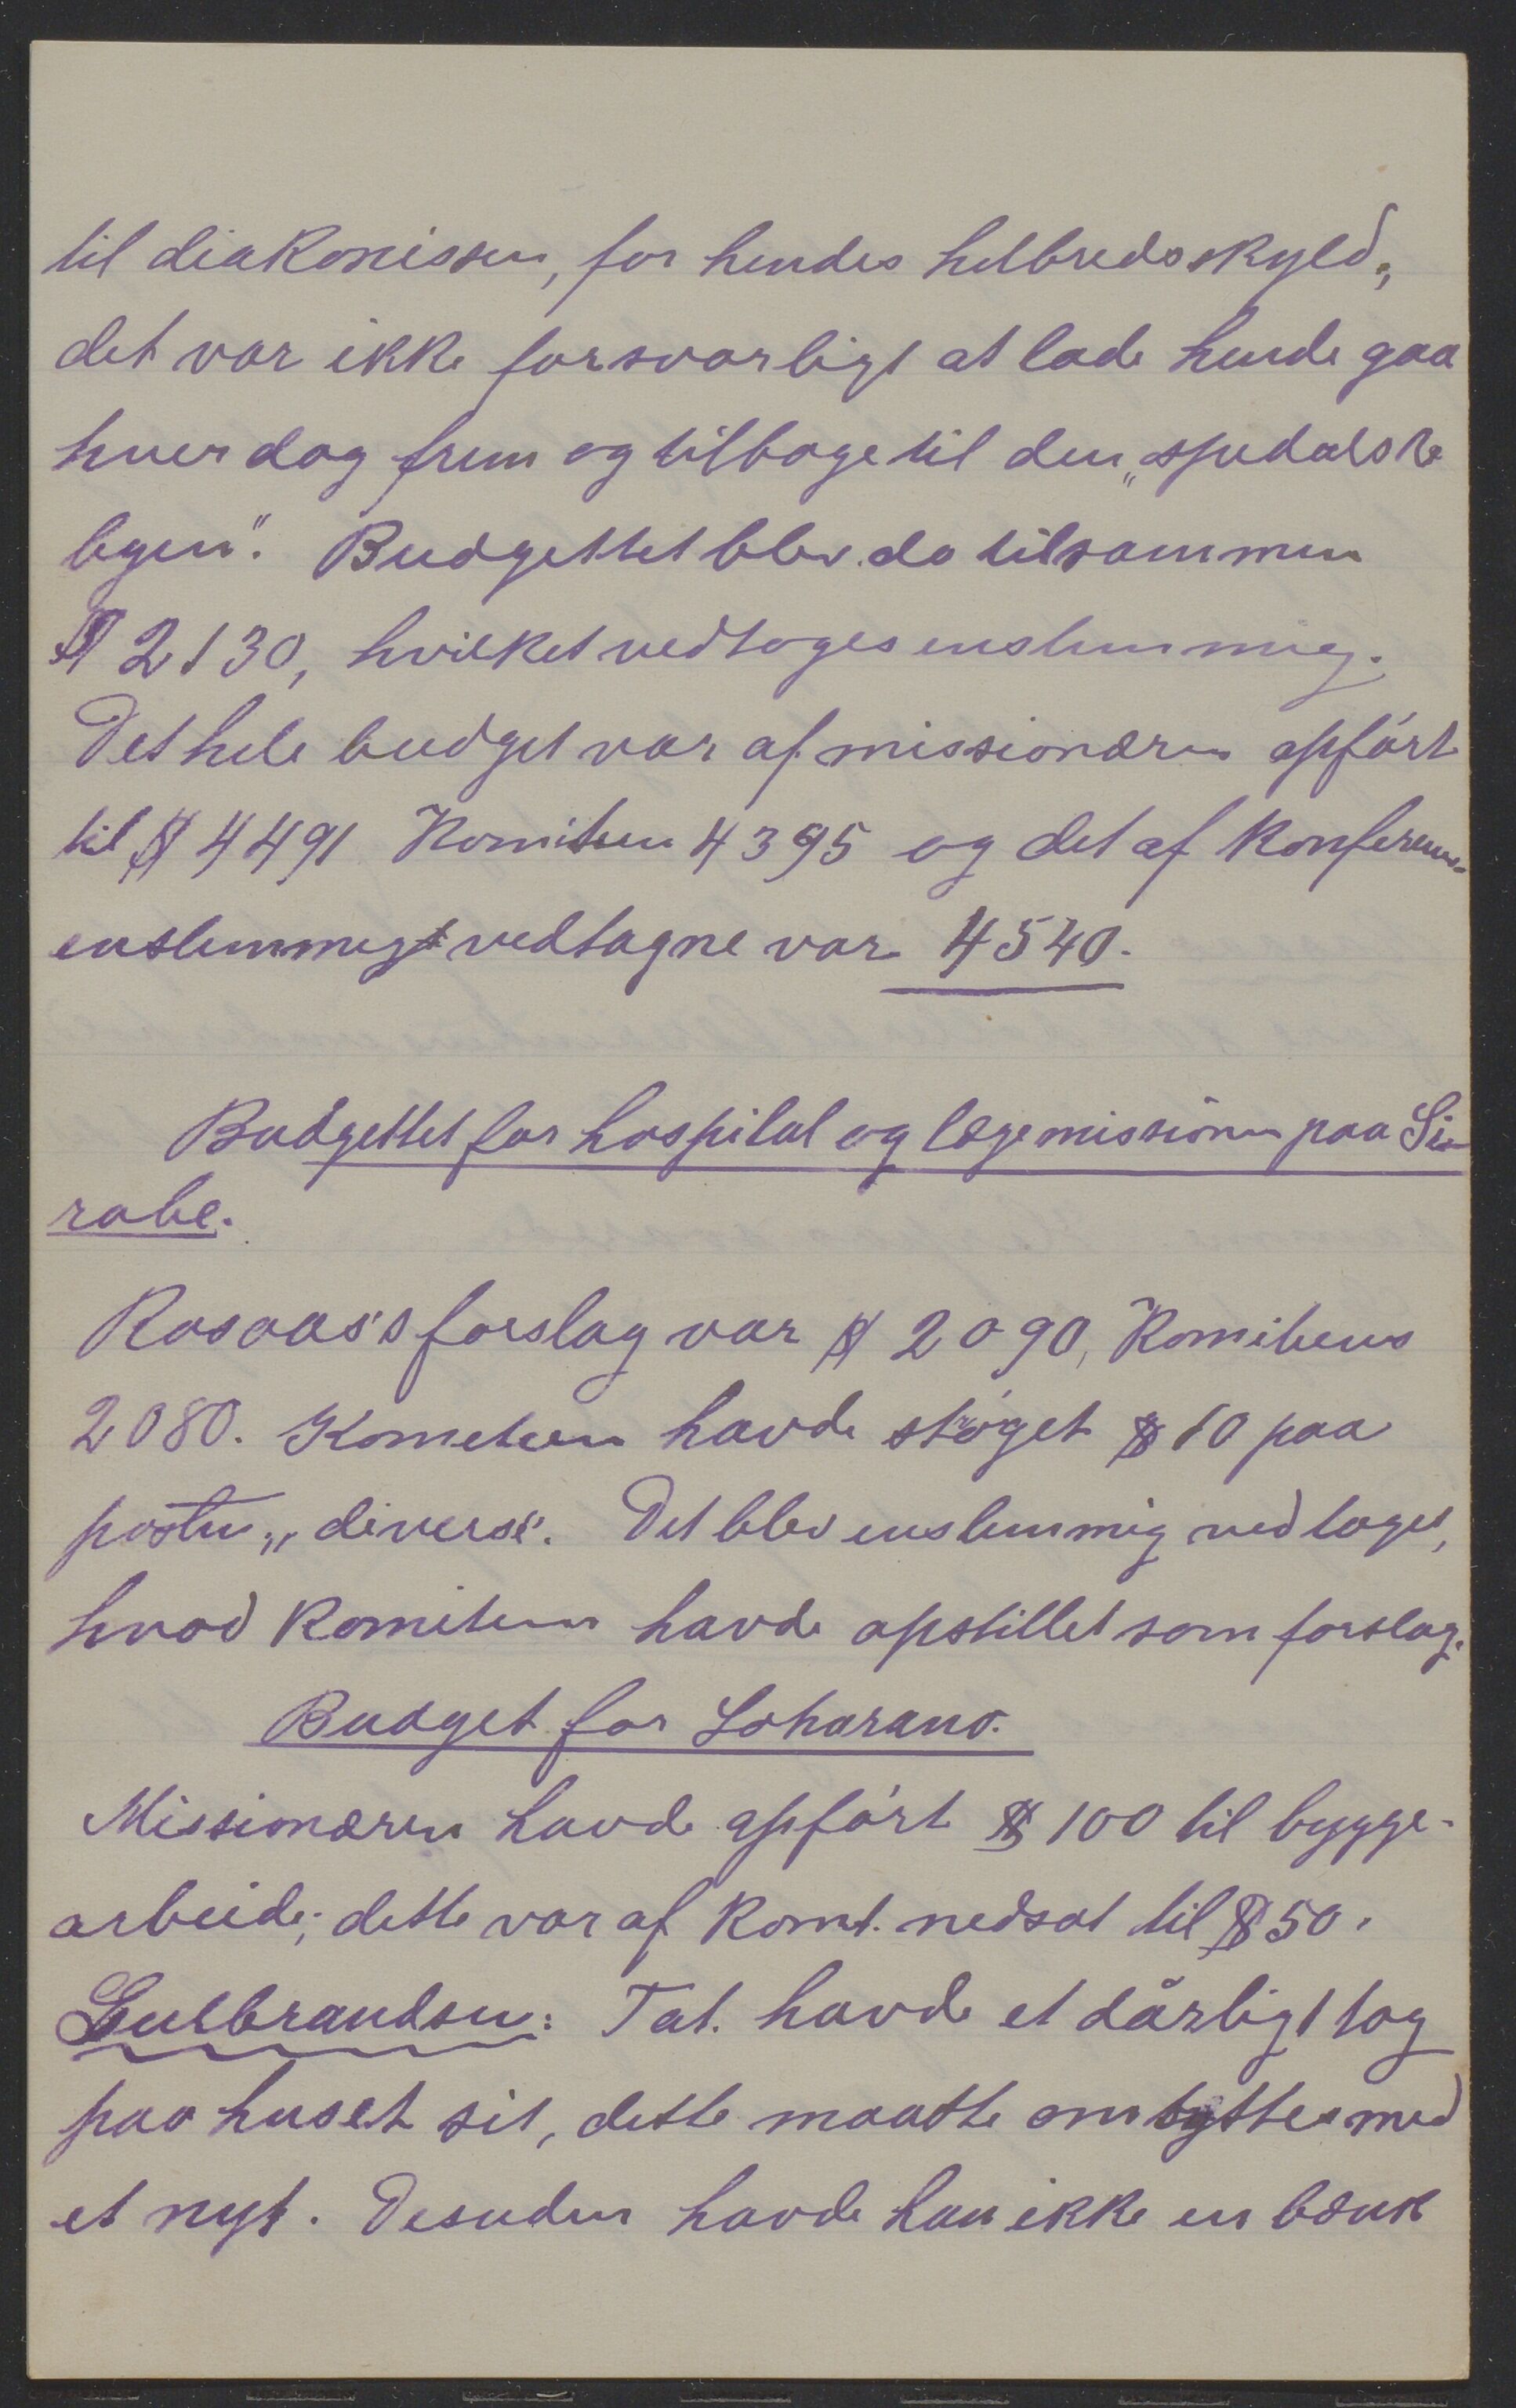 til diakonissen, for hendes helbredsskyld;
det var ikke forsvarligt at lade hende gaa
hver dag frem og tilbage til den „spedalske
byen". Budgettet blev da tilsammen
$ 2130, hvilket vedtoges enstemmig.
Det hele budget var af missionæren opført
til $ 4491 Komiteen 4395 og det af Konferens-
enstemmigt vedtagne var 4540.
Budgettet for hospital og lægemissionen paa Si-
rabe.
Rosaas's forslag var $ 2090, Komiteens
2080. Kometeen havde støget $ 10 paa
posten „diverse". Det blev enstemmig vedtaget,
hvad Komiteen havde opstillet som forslag.
Budget for Loharano.
Missionæren havde opført $ 100 til bygge-
arbeide; dette var af Komt. nedsat til $ 50.
Gulbrandsen: Tat. havde et dårligt tag
paa huset sit, dette maatte ombyttes med
et nyt. Desuden havde han ikke en bænk